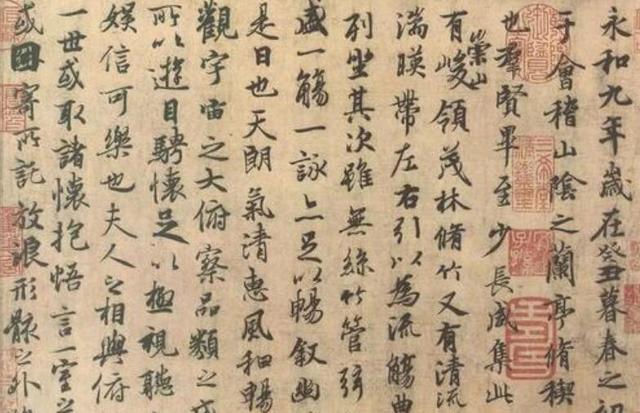 永和九年歲在癸丑暮春之初
于會稽山陰之蘭亭脩稧
也羣賢畢至少長咸集此
有崇山峻領茂林脩竹又有清流
湍暎帶左右引以為流觴曲
列坐其次雖無絲竹管弦
盛一觴一詠亦足以暢叙幽
是日也天朗氣清惠風和暢
觀宇宙之大俯察品類之
所以遊目騁懷足以極視聽
娛信可樂也夫人之相與俯
一世或取諸懷抱悟言一室之
或因寄所託放浪形骸之外